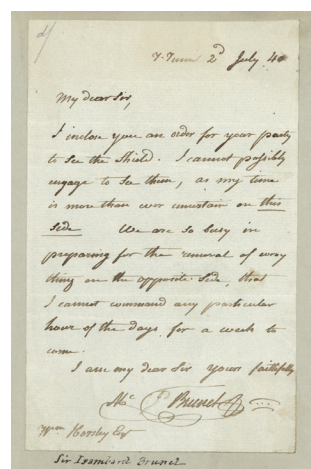 T. Tunn 2d July 40
My dear Sir,
I inclose you an order for your party
to See the Shield. I cannot possibly
engage to See them, as my time
is more than ever uncertain on this
side We are so busy in
preparing for the removal of every
thing on the opposite side, that
I cannot command any particular
hour of the days for a week to
come.
I am my dear Sir yours faithfully
Brunel
Wm Horsley Esq
Sir Isambard Brunel